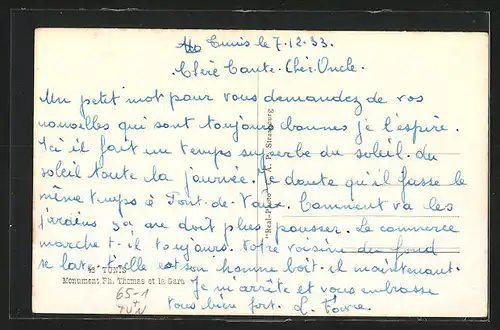 Tunis le 7.12.33.
Chère Tante. Cher Oncle.
Un petit mot pour vous demandez de vos
nouvelles qui sont toujours bonnes je l'espère.
Ici il fait un temps superbe du soleil. du
soleil toute la journée. Je doute qu'il fasse le
même temps à Pont-de-Vaux. Comment va les
jardins ça ne doit plus pousser. Le commerce
marche t-il toujours. Votre voisine du fond
se lave t-elle et son homme boit-il maintenant.
Je m'arrête et vous embrasse
tous bien fort. L. Favre.
"Real-Photo" A. P. Strasbourg
TUNIS
Monument Ph. Thomas et la Gare
65-1
+
TUN